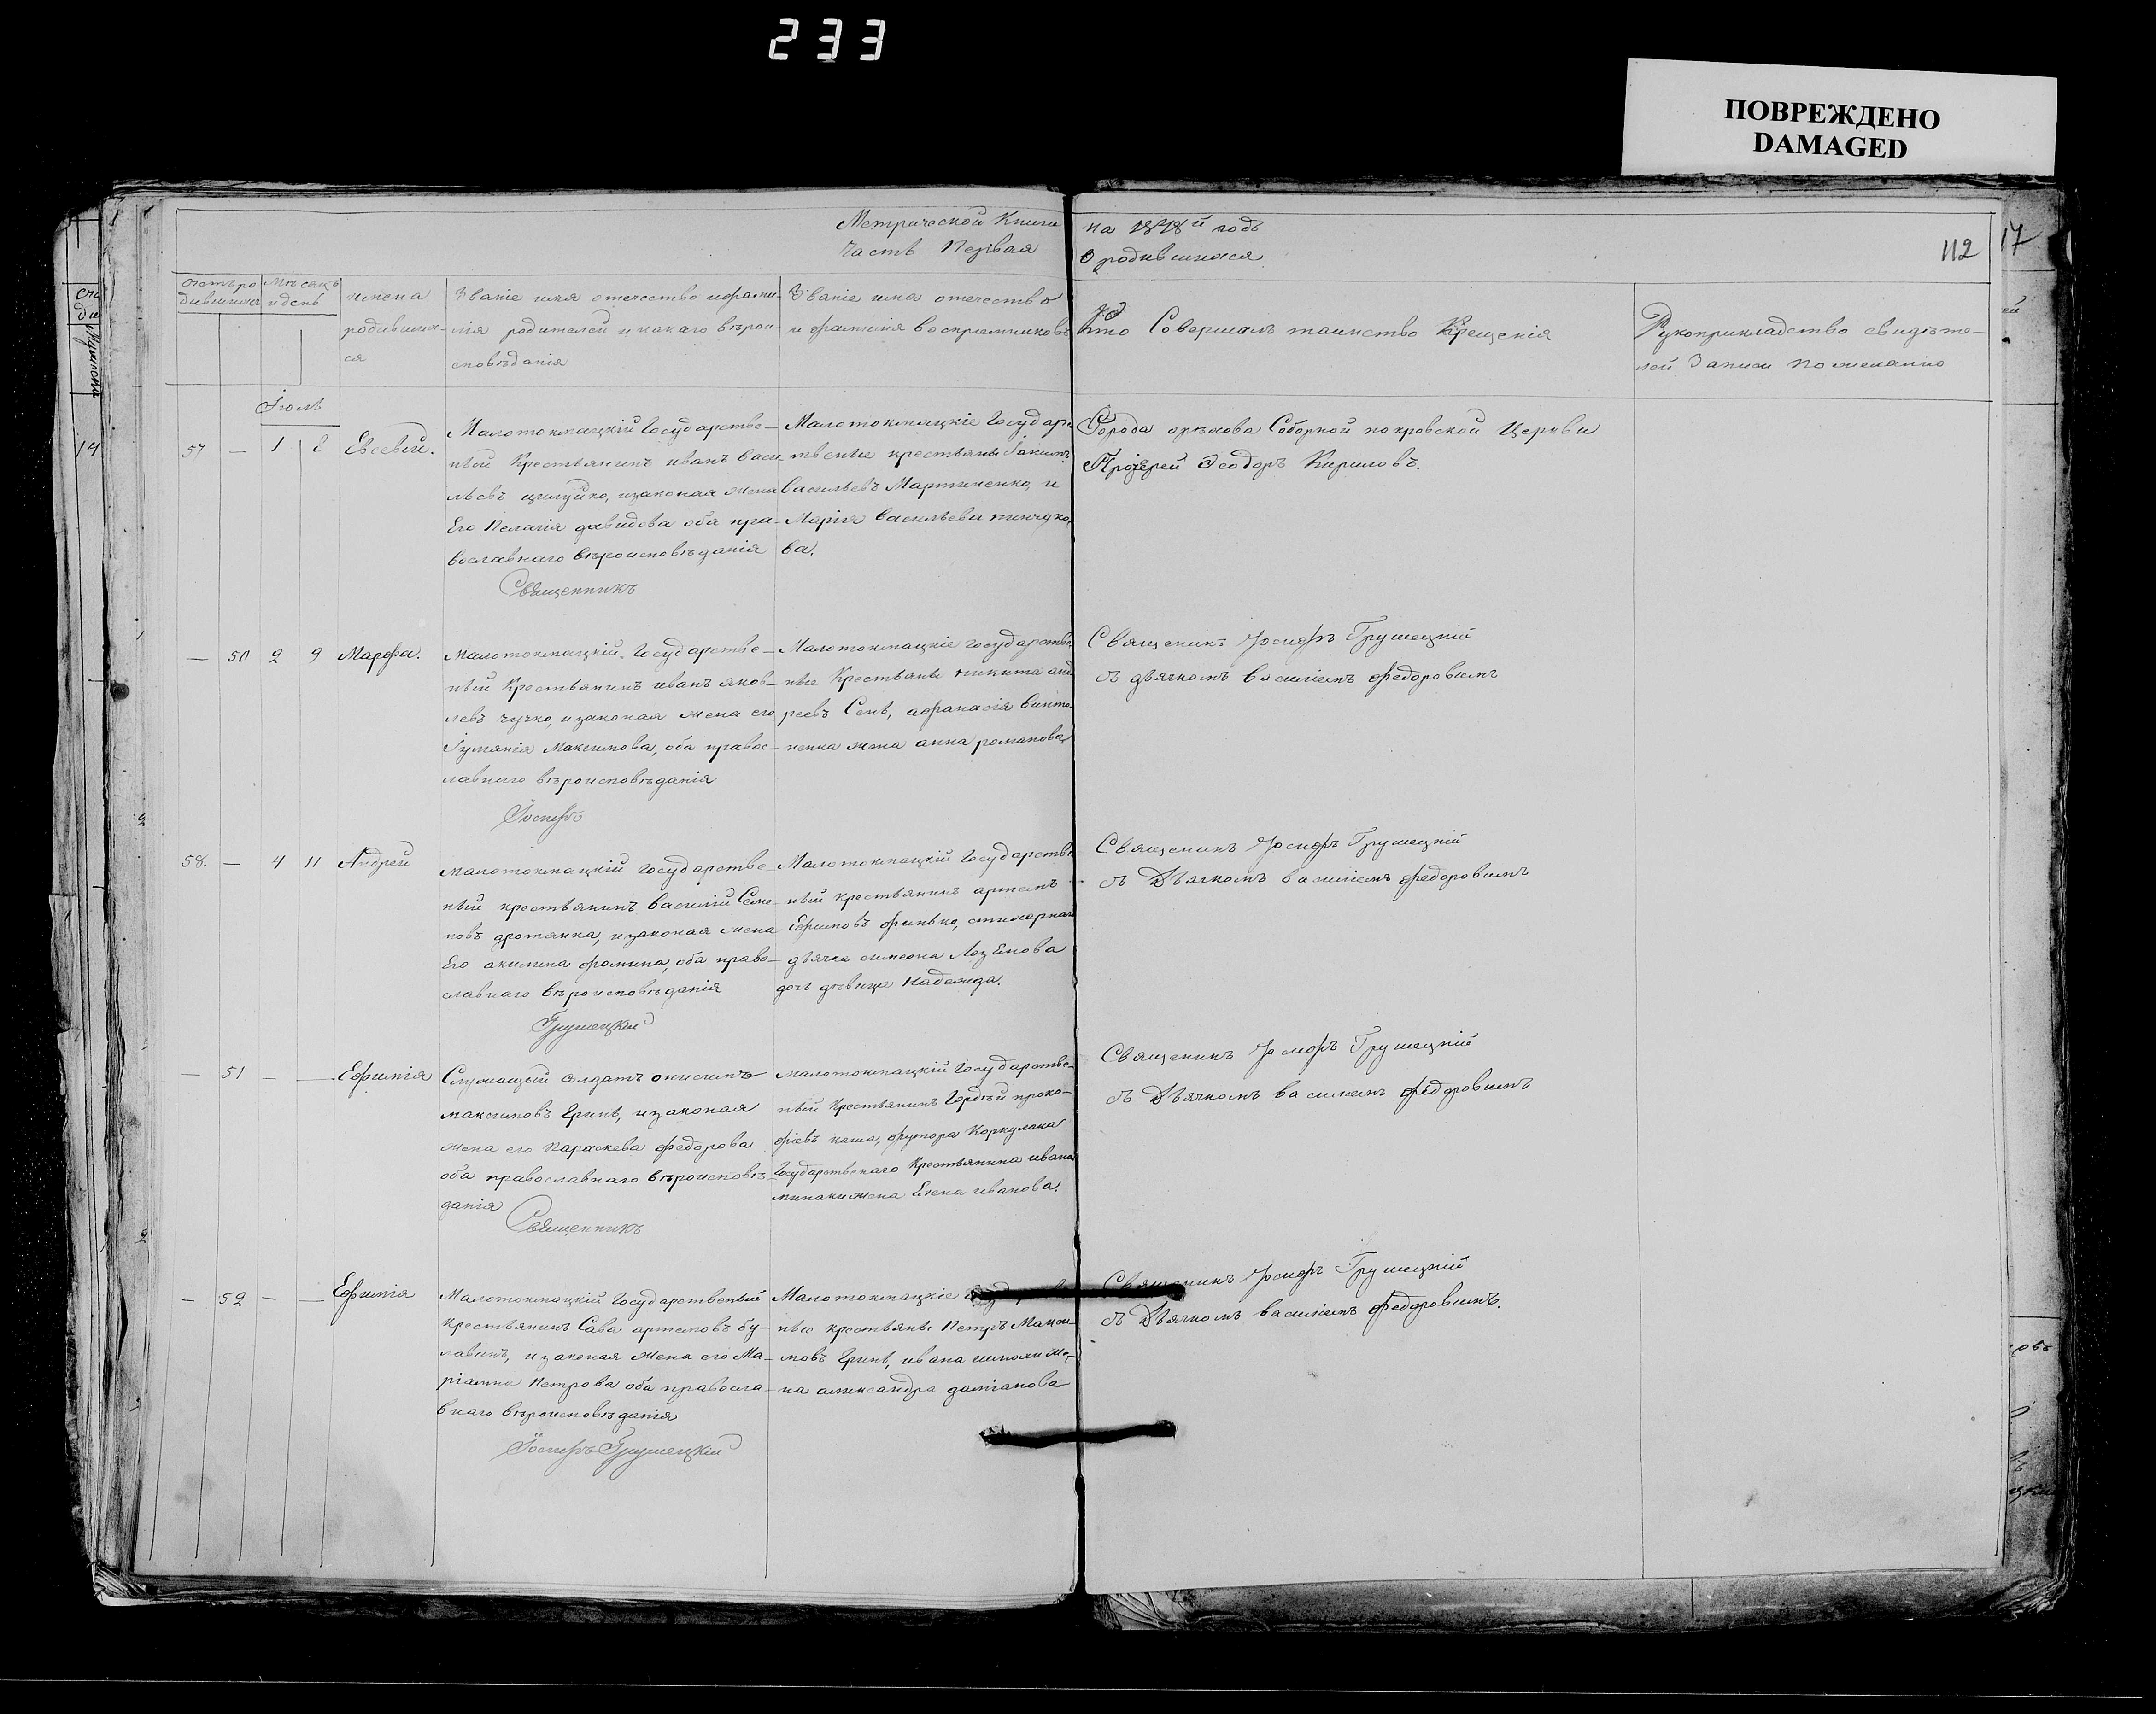 233
ПОВРЕЖДЕНО
DAMAGED
Метрической Книги на 1848й годъ
Часть Первая О родившихся
112
17
Счетъ ро
дившихся
Мѣсяцъ
и день
имена
родивших
ся
Званіе имя отечество и фами-
лія родителей и какаго вѣрои-
сповѣданія
Званіе имя отечество
и фамилія воспріемниковъ
Кто Совершалъ таинство Крещенія
Рукоприкладство свидѣте-
лей Записи по желанію
Іюль
14
57 — 1 8 Евсевій.
Малотокмацкій Государстве-
ный Крестьянинъ иванъ васи-
льевъ цилуйко, изаконая жена
Его Пелагія давидова оба пра-
вославнаго вѣроисповѣданія
Малотокмацкіе Государ
ственые крестьяны Іакимъ
васильевъ Мартиненко, и
Марія васильева
ва.
Города орѣхова Соборной покровской Церкви
Протіерей Ѳеодоръ Кириловъ.
Священникъ
— 50 2 9 Марфа.
Малотокмацкій Государстве-
ный Крестьянинъ иванъ яков-
левъ чучко, изаконая жена его
Іуліанія Максимова, оба правос-
лавнаго вѣроисповѣданія
Малотокмацкіе государстве
ные Крестьяны никита анд
реевъ Сень, афанасія винто
ненка жена анна романова
Священикъ Іосифъ Грушецкій
съ дьячкомъ василіемъ федоровимъ
Іосифъ
58. — 4 11 Андрей
Малотокмацкій Государстве-
ный крестьянинъ василій Семе-
новъ дротянка, изаконая жена
Его акилина фомина, оба право-
славнаго вѣроисповѣданія
Малотокмацкій Государстве
ный крестьянинъ артемъ
Ефимовъ финько,
дьячка симеона
дочь дѣвица Надежда.
Священикъ Іосифъ Грушецкій
съ Дьячкомъ василіемъ федоровимъ
Грушецкій
— 51 — — Ефимія
Служащый солдатъ онисимъ
максимовъ Гринь, изаконая
жена его Параскева федорова
оба православнаго вѣроисповѣ-
данія
малотокмацкій Государстве-
ный Крестьянинъ Гордѣй проко-
фіевъ каша, футора Коркулака
Государственаго Крестьянина ивана
жена Елена иванова.
Священикъ Іосифъ Грушецкій
съ Дьячкомъ василіемъ федоровимъ
Священникъ
— 52 — — Ефимія
Малотокмацкій Государственый
крестьянинъ Сава артемовъ бу-
лавинъ, изаконая жена его Ма-
ріамна Петрова оба правосла-
внаго вѣроисповѣданія
Малотокмацкіе
ные крестьяны Петръ Макси-
мовъ Гринь, ивана же-
на александра даміанова
Священикъ Іосифъ Грушецкій
съ Дьячкомъ василіемъ федоровимъ.
Іосифъ Грушецкій